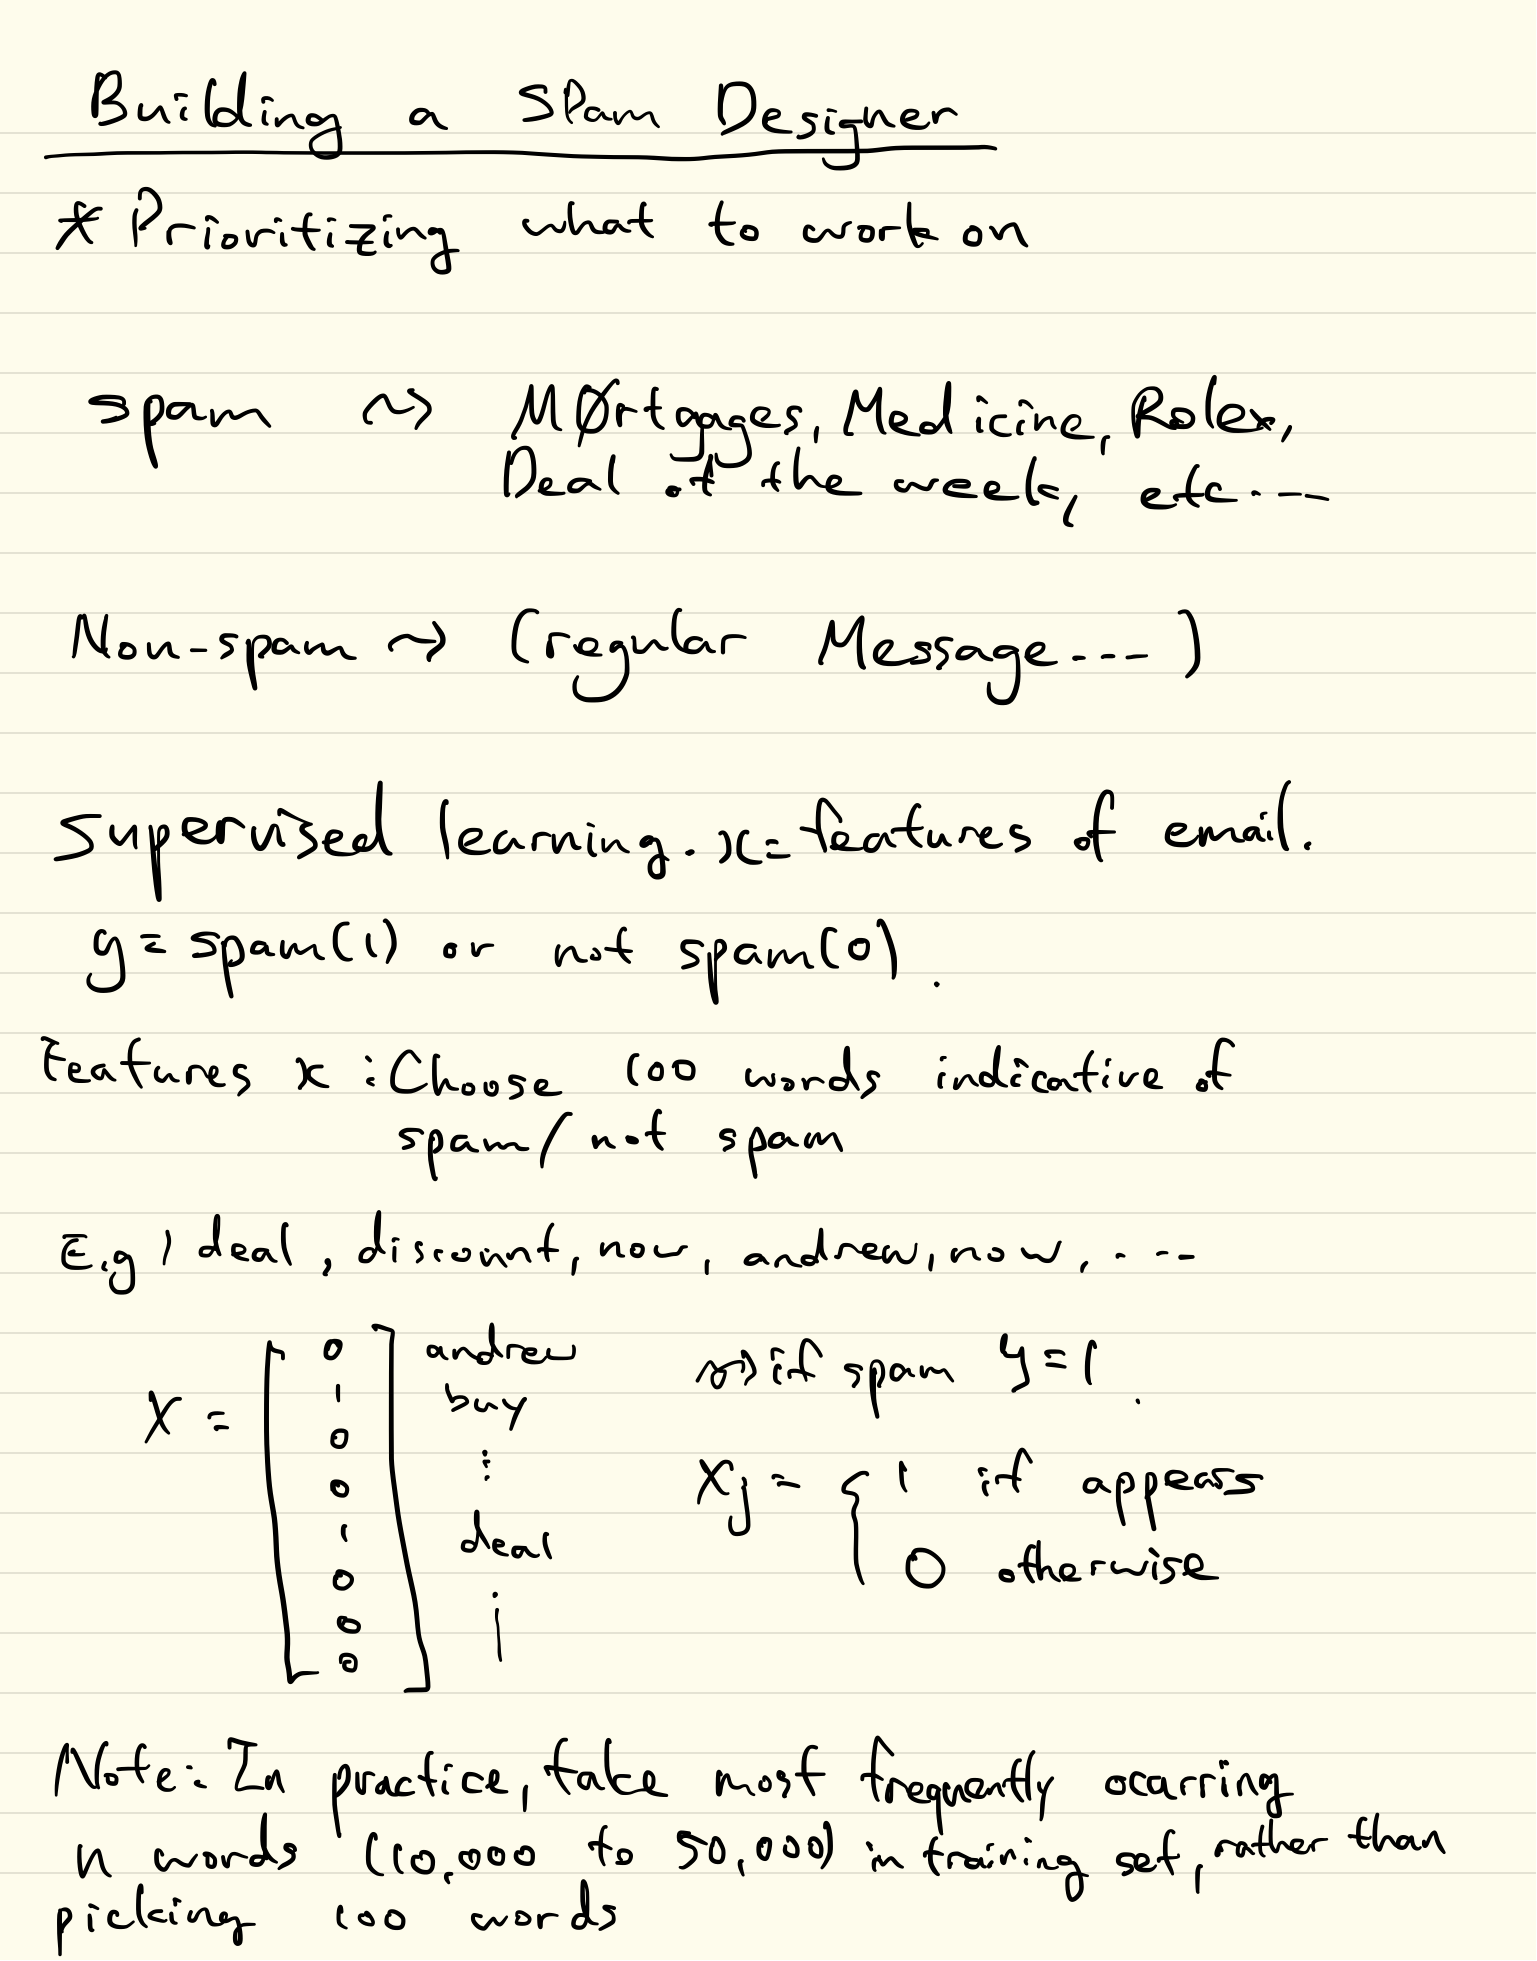 Building a Spam Designer
* Prioritizing what to work on
spam ⇝ MØrtgages, Medicine, Rolex,
Deal of the week, etc....
Non-spam ⇝ (regular Message....)
Supervised learning. x = features of email.
y = spam(1) or not spam(0).
Features x : Choose 100 words indicative of
spam/not spam
E.g) deal, discount, now, andrew, now, ....
X = [ 0 1 0 0 1 0 0 0 ] andrew buy ⋮ deal ⋮
⇝ if spam y = 1.
Xj = { 1 if appears
0 otherwise
Note: In practice, take most frequently ocarring
n words (10,000 to 50,000) in training set, rather than
picking 100 words